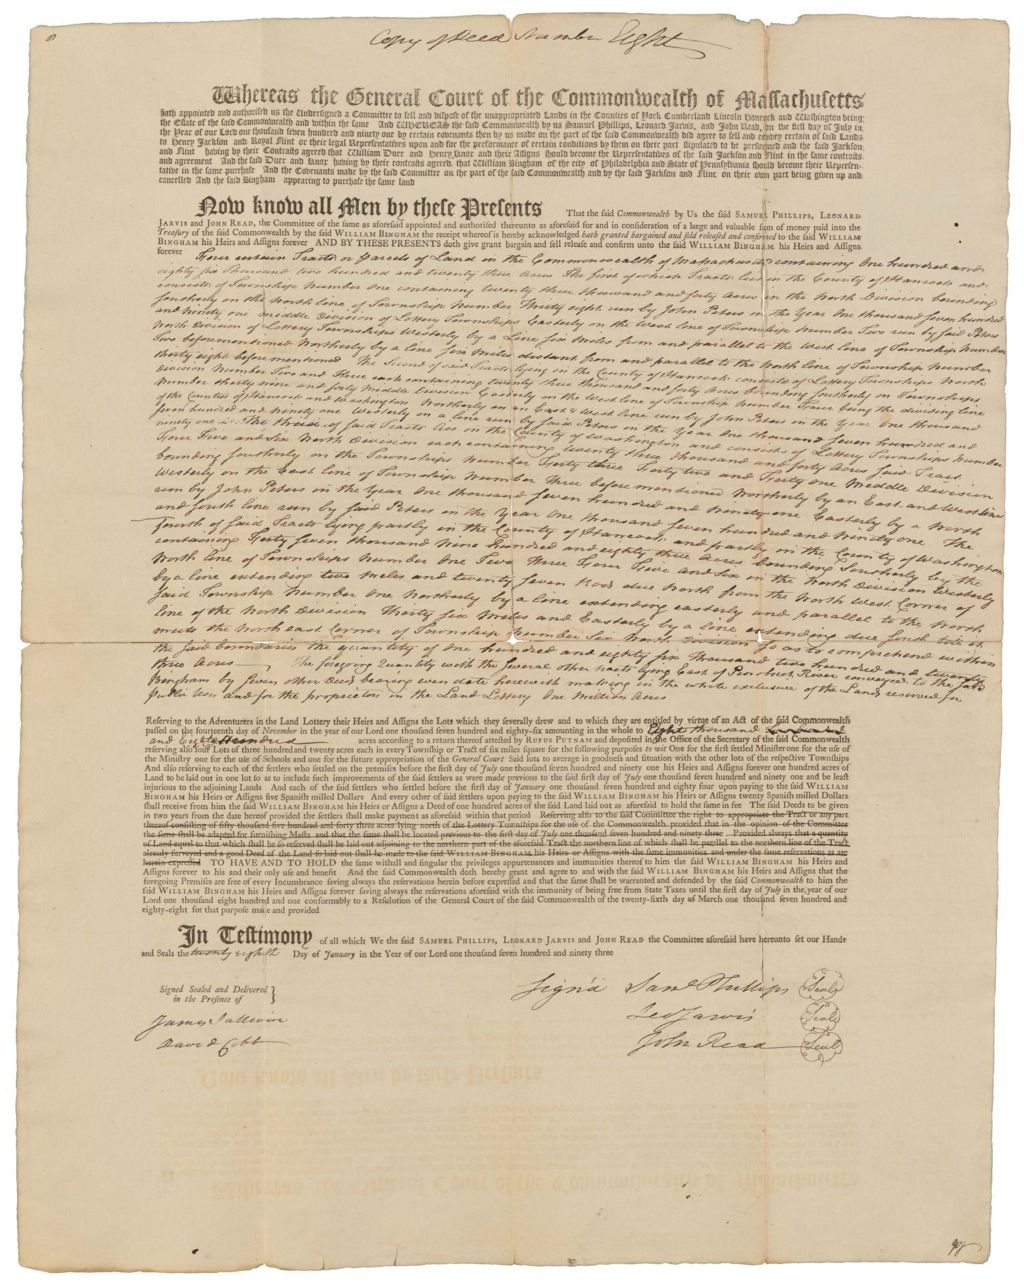 8
Copy of Deed Number Eight
Whereas the General Court of the Commonwealth of Massachusetts
hath appointed and authorised us the Undersigned a Committee to sell and dispose of the unappropriated Lands in the Counties of York Cumberland Lincoln Hancock and Washington being
the Estate of the said Commonwealth and within the same And WHEREAS the said Commonwealth by us Samuel Phillips, Leonard Jarvis, and John Read, on the first day of July in
the Year of our Lord one thousand seven hundred and ninety one by certain covenants then by us made on the part of the said Commonwealth did agree to sell and convey certain of said Lands
to Henry Jackson and Royal Flint or their legal Representatives upon and for the performance of certain conditions by them on their part stipulated to be performed and the said Jackson
and Flint having by their Contracts agreed that William Duer and Henry Knox and their Assigns should become the Representatives of the said Jackson and Flint in the same contracts
and agreement And the said Duer and Knox having by their contracts agreed that William Bingham of the city of Philadelphia and State of Pennsylvania should become their Represen-
tative in the same purchase And the Covenants made by the said Committee on the part of the said Commonwealth and by the said Jackson and Flint on their own part being given up and
cancelled And the said Bingham appearing to purchase the same land
Now know all Men by these Presents That the said Commonwealth by Us the said SAMUEL PHILLIPS, LEONARD
JARVIS and JOHN READ, the Committee of the same as aforesaid appointed and authorised thereunto as aforesaid for and in consideration of a large and valuable sum of money paid into the
Treasury of the said Commonwealth by the said WILLIAM BINGHAM the receipt whereof is hereby acknowledged hath granted bargained and sold released and confirmed to the said WILLIAM
BINGHAM his Heirs and Assigns forever AND BY THESE PRESENTS doth give grant bargain and sell release and confirm unto the said WILLIAM BINGHAM his Heirs and Assigns
forever Four certain Tracts or parcels of Land in the Commonwealth of Massachusetts containing One hundred and
eighty six Thousand two hundred and twenty three Acres The first of which Tracts lies in the County of Hancock and
consists of Township Number One containing twenty three thousand and forty Acres in the North Division bounding
southerly on the North line of Township Number Thirty eight run by John Peters in the Year One thousand seven hundred
and ninety one middle Division of Lottery Townships Easterly on the West line of Township Number Two run by said Peters
North Division of Lottery Townships Westerly by a Line six Miles from and parallel to the West line of Township Number
Two beforementioned Northerly by a line six Miles distant from and parallel to the North line of Township Number
thirty eight beforementioned The Second of said Tracts lying in the County of Hancock consists of Lottery Townships North
Division Number Two and Three each containing twenty three thousand and forty Acres bounding southerly on Townships
Number thirty nine and forty Middle Division Easterly on the West line of Township Number Four being the dividing line
of the Counties of Hancock and Washington Northerly on an East & West line run by John Peters in the Year One thousand
seven hundred and ninety one Westerly on a line run by said Peters in the Year One thousand seven hundred and
ninety one The third of said Tracts lies in the County of Washington and consists of Lottery Townships Number
Four Five and Six North Division each containing twenty three thousand and forty Acres said Tract
bounding southerly on the Townships Number Forty three Forty two and Forty One Middle Division
Westerly on the East line of Township Number Three before mentioned Northerly by an East and West line
run by John Peters in the Year One thousand seven hundred and ninety one Easterly by a North
and south line run by said Peters in the Year One thousand seven hundred and ninety one. The
fourth of said Tracts lying partly in the County of Hancock and partly in the County of Washington
containing Forty seven thousand Nine hundred and eighty three Acres bounding Southerly by the
North line of Townships Number One Two Three Four Five and Six in the North Division Westerly
by a line extending two Miles and twenty seven Rods due North from the North West Corner of
said Township Number One Northerly by a line extending easterly and parallel to the North
line of the North Division Thirty Six Miles and Easterly by a line extending due South till it
meets the North east Corner of Township Number Six North Division so as to comprehend within
the said boundaries the quantity of One hundred and eighty six Thousand two hundred and twenty
three Acres The foregoing Quantity with the several other tracts lying East of Penobscot River conveyed to the said
Bingham by Seven other Deeds bearing even date herewith making in the whole exclusive of the Lands reserved for
Public Uses and for the proprietors in the Land Lottery One Million Acres
Reserving to the Adventurers in the Land Lottery their Heirs and Assigns the Lots which they severally drew and to which they are entitled by virtue of an Act of the said Commonwealth
passed on the fourteenth day of November in the year of our Lord one thousand seven hundred and eighty-six amounting in the whole to Eight thousand
and Eighty Hundred acres according to a return thereof attested by RUFUS PUTNAM and deposited in the Office of the Secretary of the said Commonwealth
reserving also four Lots of three hundred and twenty acres each in every Township or Tract of six miles square for the following purposes to wit One for the first settled Minister one for the use of
the Ministry one for the use of Schools and one for the future appropriation of the General Court Said lots to average in goodness and situation with the other lots of the respective Townships
And also reserving to each of the settlers who settled on the premises before the first day of July one thousand seven hundred and ninety one his Heirs and Assigns forever one hundred acres of
Land to be laid out in one lot so as to include such improvements of the said settlers as were made previous to the said first of July one thousand seven hundred and ninety one and be least
injurious to the adjoining Lands And each of the said settlers who settled before the first day of January one thousand seven hundred and eighty four upon paying to the said WILLIAM
BINGHAM his Heirs or Assigns five Spanish milled Dollars And every other of said settlers upon paying to the said WILLIAM BINGHAM his Heirs or Assigns twenty Spanish milled Dollars
shall receive from him the said WILLIAM BINGHAM his Heirs or Assigns a Deed of one hundred acres of the said Land laid out as aforesaid to hold the same in fee The said Deeds to be given
in two years from the date hereof provided the settlers shall make payment as aforesaid within that period Reserving also to the said Committee the right to appropriate the Tract or any part
thereof consisting of fifty thousand five hundred and forty three acres lying north of the Lottery Townships for the use of the Commonwealth, provided that in the opinion of the Committee
the same shall be adapted for furnishing Masts and that the same shall be located previous to the first day of July one thousand seven hundred and ninety three. Provided always that a quantity
of Land equal to that which shall be so reserved shall be laid out adjoining to the northern part of the aforesaid Tract the northern line of which shall be parallel to the northern line of the Tract
already surveyed and a good Deed of the Land so laid out shall be made to the said WILLIAM BINGHAM his Heirs or Assigns with the same immunities and under the same reservations as are
herein expressed TO HAVE AND TO HOLD the same withall and singular the privileges appurtenances and immunities thereof to him the said WILLIAM BINGHAM his Heirs and
Assigns forever to his and their only use and benefit And the said Commonwealth doth hereby grant and agree to and with the said WILLIAM BINGHAM his Heirs and Assigns that the
foregoing Premises are free of every Incumbrance saving always the reservations herein before expressed and that the same shall be warranted and defended by the said Commonwealth to him the
said WILLIAM BINGHAM his Heirs and Assigns forever saving always the reservations aforesaid with the immunity of being free from State Taxes until the first day of July in the year of our
Lord one thousand eight hundred and one conformably to a Resolution of the General Court of the said Commonwealth of the twenty-sixth day of March one thousand seven hundred and
eighty-eight for that purpose made and provided
In Testimony of all which We the said SAMUEL PHILLIPS, LEONARD JARVIS and JOHN READ the Committee aforesaid have hereunto set our Hands
and Seals the twenty eighth Day of January in the Year of our Lord one thousand seven hundred and ninety three
Signed Sealed and Delivered
in the Presence of
James Sullivan
David Cobb
Sign'd Saml Phillips Seal
Leo Jarvis Seal
John Read Seal